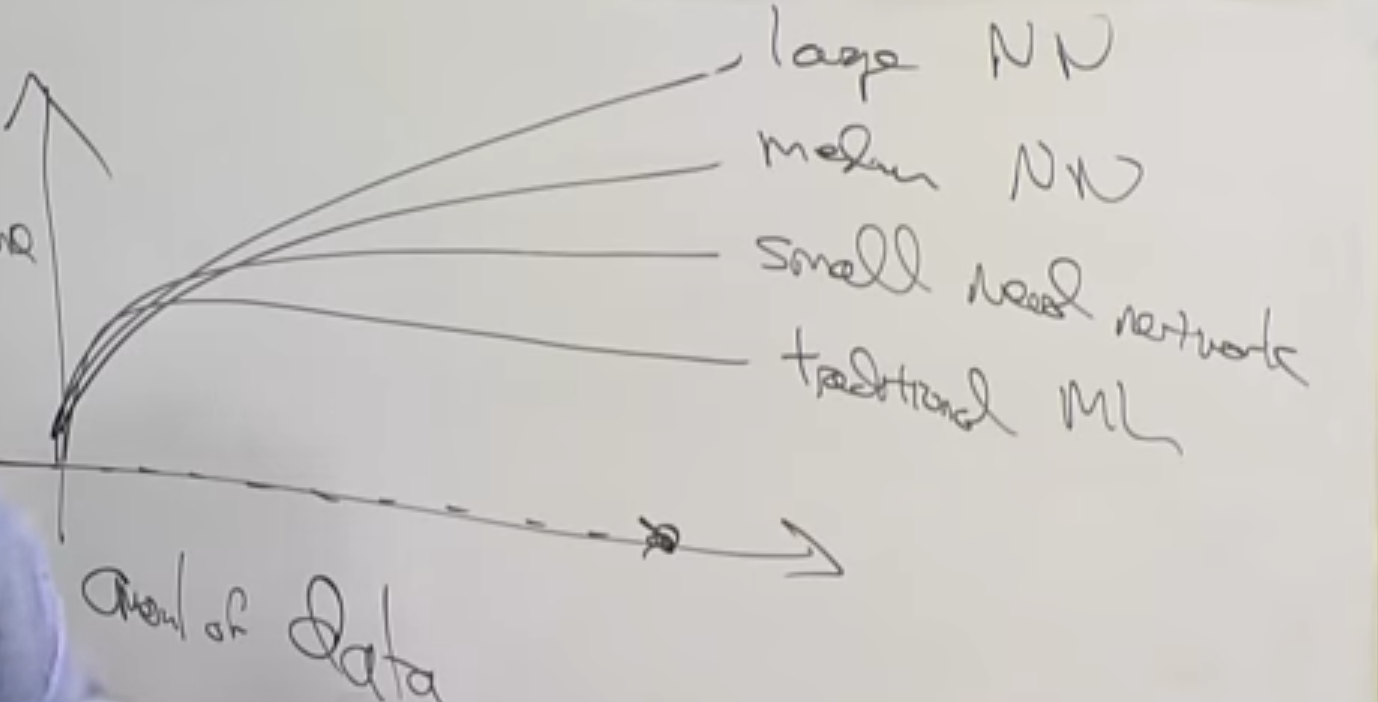 large NN
medium NN
small neural network
traditional ML
amount of Data